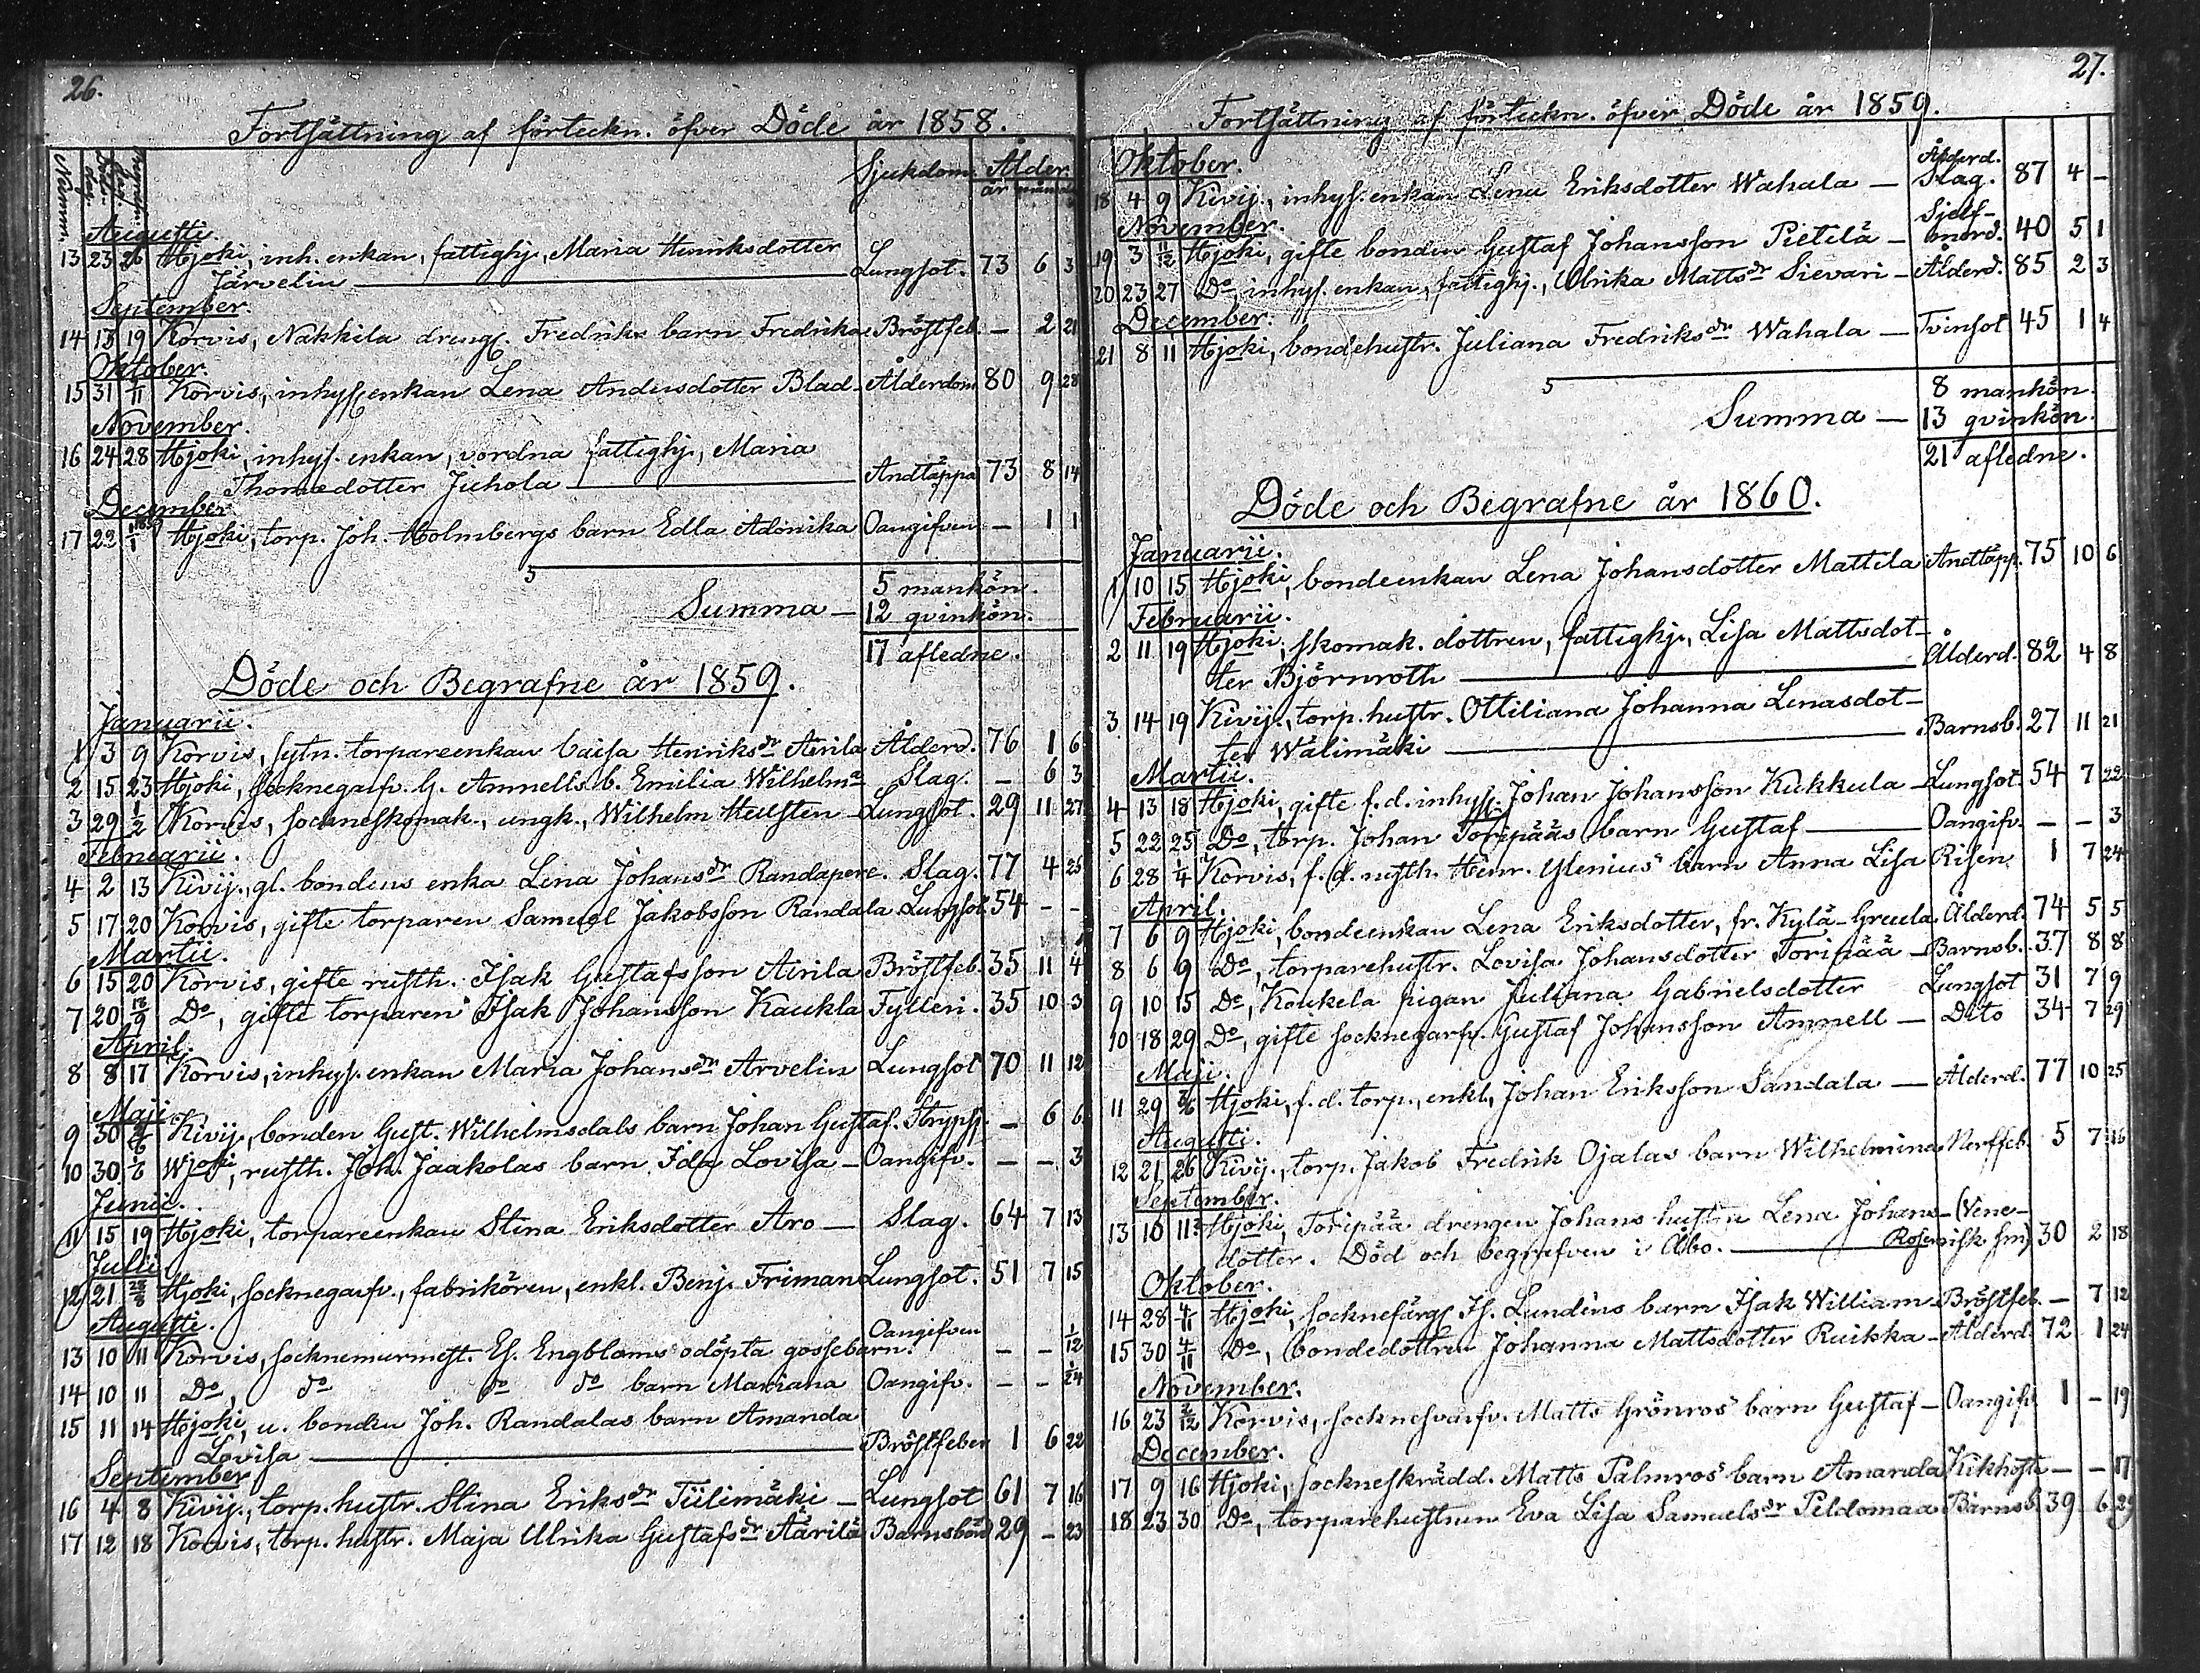 26.
Fortsättning af förteckn. öfver Döde år 1858.
Numm. Död. dag. Begrafn. dag. Sjukdom. Ålder.
år mån. dag.
Augusti.
13 23 26 Hjoki, inh. enkan, fattighj., Maria Henriksdotter
Järvelin — Lungsot. 73 6 3
September.
14 13 19 Korvis, Nakkila drengs. Fredriks barn Fredrika Bröstfeb. — 2 21
Oktober.
15 31 1/11 Korvis, inhyss. enkan Lena Andersdotter Blad - Ålderdom 80 9 28
November.
16 24 28 Hjoki, inhys. enkan, vordna fattighj., Maria
Thomædotter Juhola — Andtäppa 73 8 14
December
17 22 1/1 1859 Hjoki, torp. Joh. Holmbergs barn Edla Adonika Oangifven — 1 1
5
5 mankön.
Summa — 12 qvinkön.
17 afledne.
Döde och Begrafne år 1859.
Januarii.
1 3 9 Korvis, sytn. torpareenkan Caisa Henriksdr Airila Ålderd. 76 1 6
2 15 23 Hjoki, socknegarfv. G. Amnells b. Emilia Wilhelma Slag. — 6 3
3 29 1/2 Korvis, sockneskomak., ungk., Wilhelm Heusten - Lungsot. 29 11 27
Februarii.
4 2 13 Kivij., gl. bondens enka Lena Johansdr Randapere. Slag. 77 4 25
5 17 20 Korvis, gifte torparen Samuel Jakobsson Randala Lungsot 54 - -
Martii.
6 15 20 Korvis, gifte rusth. Isak Gustafsson Airila Bröstfeb. 35 11 4
7 20 Do, gifte torparen Isak Johansson Kaukla Fylleri. 35 10 3
April.
8 8 17 Korvis, inhys. enkan Maria Johansdr Arvelin Lungsot 70 11 12
Maji
9 30 Kivij., bonden Gust. Wilhelmsdals barn Johan Gustaf. Stryps. — 6 6
10 30 Hjoki, rusth. Joh. Jaakolas barn Ida Lovisa - Oangifv. — — 3
Junii.
11 15 19 Hjoki, torpareenkan Stina Eriksdotter Aro — Slag. 64 7 13
Julii
12 21 28/8 Hjoki, socknegarfv., fabrikören, enkl. Benj. Friman Lungsot. 51 7 15
Augusti.
13 10 11 Korvis, socknemurmest. Es. Engbloms odöpta gossebarn. Oangifven — — 1/12
14 10 11 Do, do do do barn Mariana Oangifv. — — 1/24
15 11 14 Hjoki, u. bonden Joh. Randalas barn Amanda
Lovisa — Bröstfeber 1 6 22
September
16 4 8 Kivij., torp. hustr. Stina Eriksdr Tiilimäki — Lungsot 61 7 16
17 12 18 Korvis, torp. hustr. Maja Ulrika Gustafsdr Aärilä Barnsbörd 29 — 23
27.
Fortsättning af förteckn. öfver Döde år 1859.
Oktober.
18 4 9 Kivij., inhys. enkan Lena Eriksdotter Wahala — Ålderd. Slag. 87 4 —
November.
19 3 11/12 Hjoki, gifte bonden Gustaf Johansson Pietilä — Sjelf-mord. 40 5 1
20 23 27 Do, inhys. enkan, fattighj., Ulrika Mattsdr Sievari - Ålderd. 85 2 3
December.
21 8 11 Hjoki, bondehustr. Juliana Fredriksdr Wahala — Tvinsot 45 1 4
5
8 mankön.
Summa — 13 qvinkön.
21 afledne.
Döde och Begrafne år 1860.
Januarii.
1 10 15 Hjoki, bondeenkan Lena Johansdotter Mattila Andtäpp. 75 10 6
Februarii.
2 11 19 Hjoki, skomak. dottren, fattighj., Lisa Mattsdot-
ter Björnroth — Ålderd. 82 4 8
3 14 19 Kivij., torp. hustr. Ottiliana Johanna Lenasdot-
ter Wälimäki — Barnsb. 27 11 21
Martii.
4 13 18 Hjoki, gifte f. d. inhys. Johan Johansson Kukkula - Lungsot. 54 7 22
5 22 25 Do, torp. Johan Toripääs barn Gustaf — Oangifv. — — 3
6 28 1/4 Korvis, f. d. rusth. Henr. Ylenius' barn Anna Lisa Risen 1 7 24
April.
7 6 9 Hjoki, bondeenkan Lena Eriksdotter, fr. Kylä-Greula. Ålderd. 74 5 5
8 6 9 Do, torparehustr. Lovisa Johansdotter Toripää - Barnsb. 37 8 8
9 10 15 Do, Koukela pigan Juliana Gabrielsdotter Lungsot 31 7 9
10 18 29 Do, gifte socknegarfv. Gustaf Johansson Amnell — Dito 34 7 29
Maji.
11 29 3/6 Hjoki, f. d. torp., enkl., Johan Eriksson Sandala — Ålderd. 77 10 25
Augusti.
12 21 26 Kivij., torp. Jakob Fredrik Ojalas barn Wilhelmina Nerffeb. 5 7 16
September.
13 10 11 Hjoki, Toripää drengen Johans hustru Lena Johans- (Vene-
dotter. Död och begrafven i Åbo. — Rosen risk sm) 30 2 18
Oktober.
14 28 4/11 Hjoki, socknefärgs. Is. Lundéns barn Isak William - Bröstfeb. — 7 12
15 30 4/11 Do, bondedottren Johanna Mattsdotter Ruikka - Ålderd. 72 1 24
November.
16 23 2/12 Korvis, socknesvarfv. Matts Grönros' barn Gustaf - Oangifv. 1 — 19
December.
17 9 16 Hjoki, sockneskrädd. Matts Palmros' barn Amanda Kikhosta — — 17
18 23 30 Do, torparehustrun Eva Lisa Samuelsdr Peldomaa Barnsb. 39 6 29